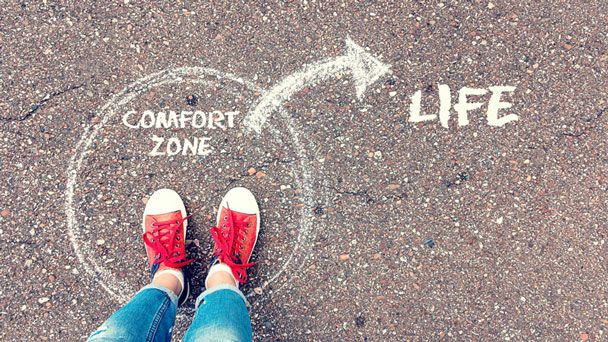 COMFORT
ZONE
LIFE